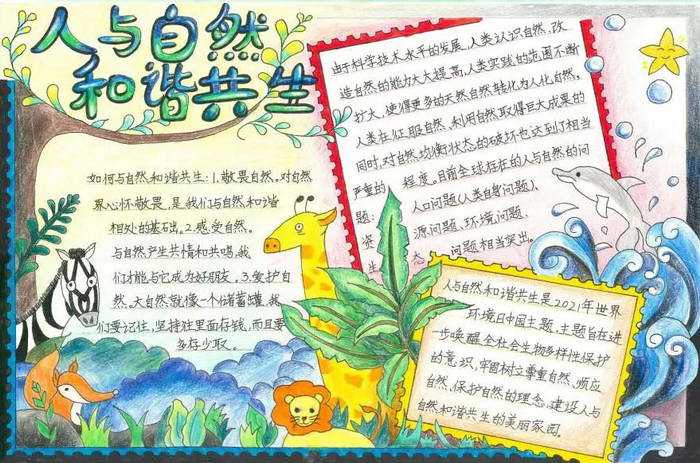 人与自然
和谐共生
如何与自然和谐共生:1.敬畏自然。对自然
界心怀敬畏,是我们与自然和谐
相处的基础。2.感受自然。
与自然产生共情和共鸣,我
们才能与它成为好朋友。3.爱护自
然。大自然就像一个储蓄罐,我
们要记住,坚持往里面存钱,而且要
多存少取。
由于科学技术水平的发展,人类认识自然、改
造自然的能力大大提高,人类实践的范围不断
扩大,使得更多的天然自然转化为人化自然。
人类在征服自然、利用自然取得巨大成果的
同时,对自然均衡状态的破坏也达到了相当
严重的程度。目前全球存在的人与自然的问
题:人口问题(人类自身问题)、
资源问题、环境问题、
生太问题相当突出。
人与自然和谐共生是2021年世界
环境日中国主题,主题旨在进
一步唤醒全社会生物多样性保护
的意识,牢固树立尊重自然、顺应
自然、保护自然的理念,建设人与
自然和谐共生的美丽家园。